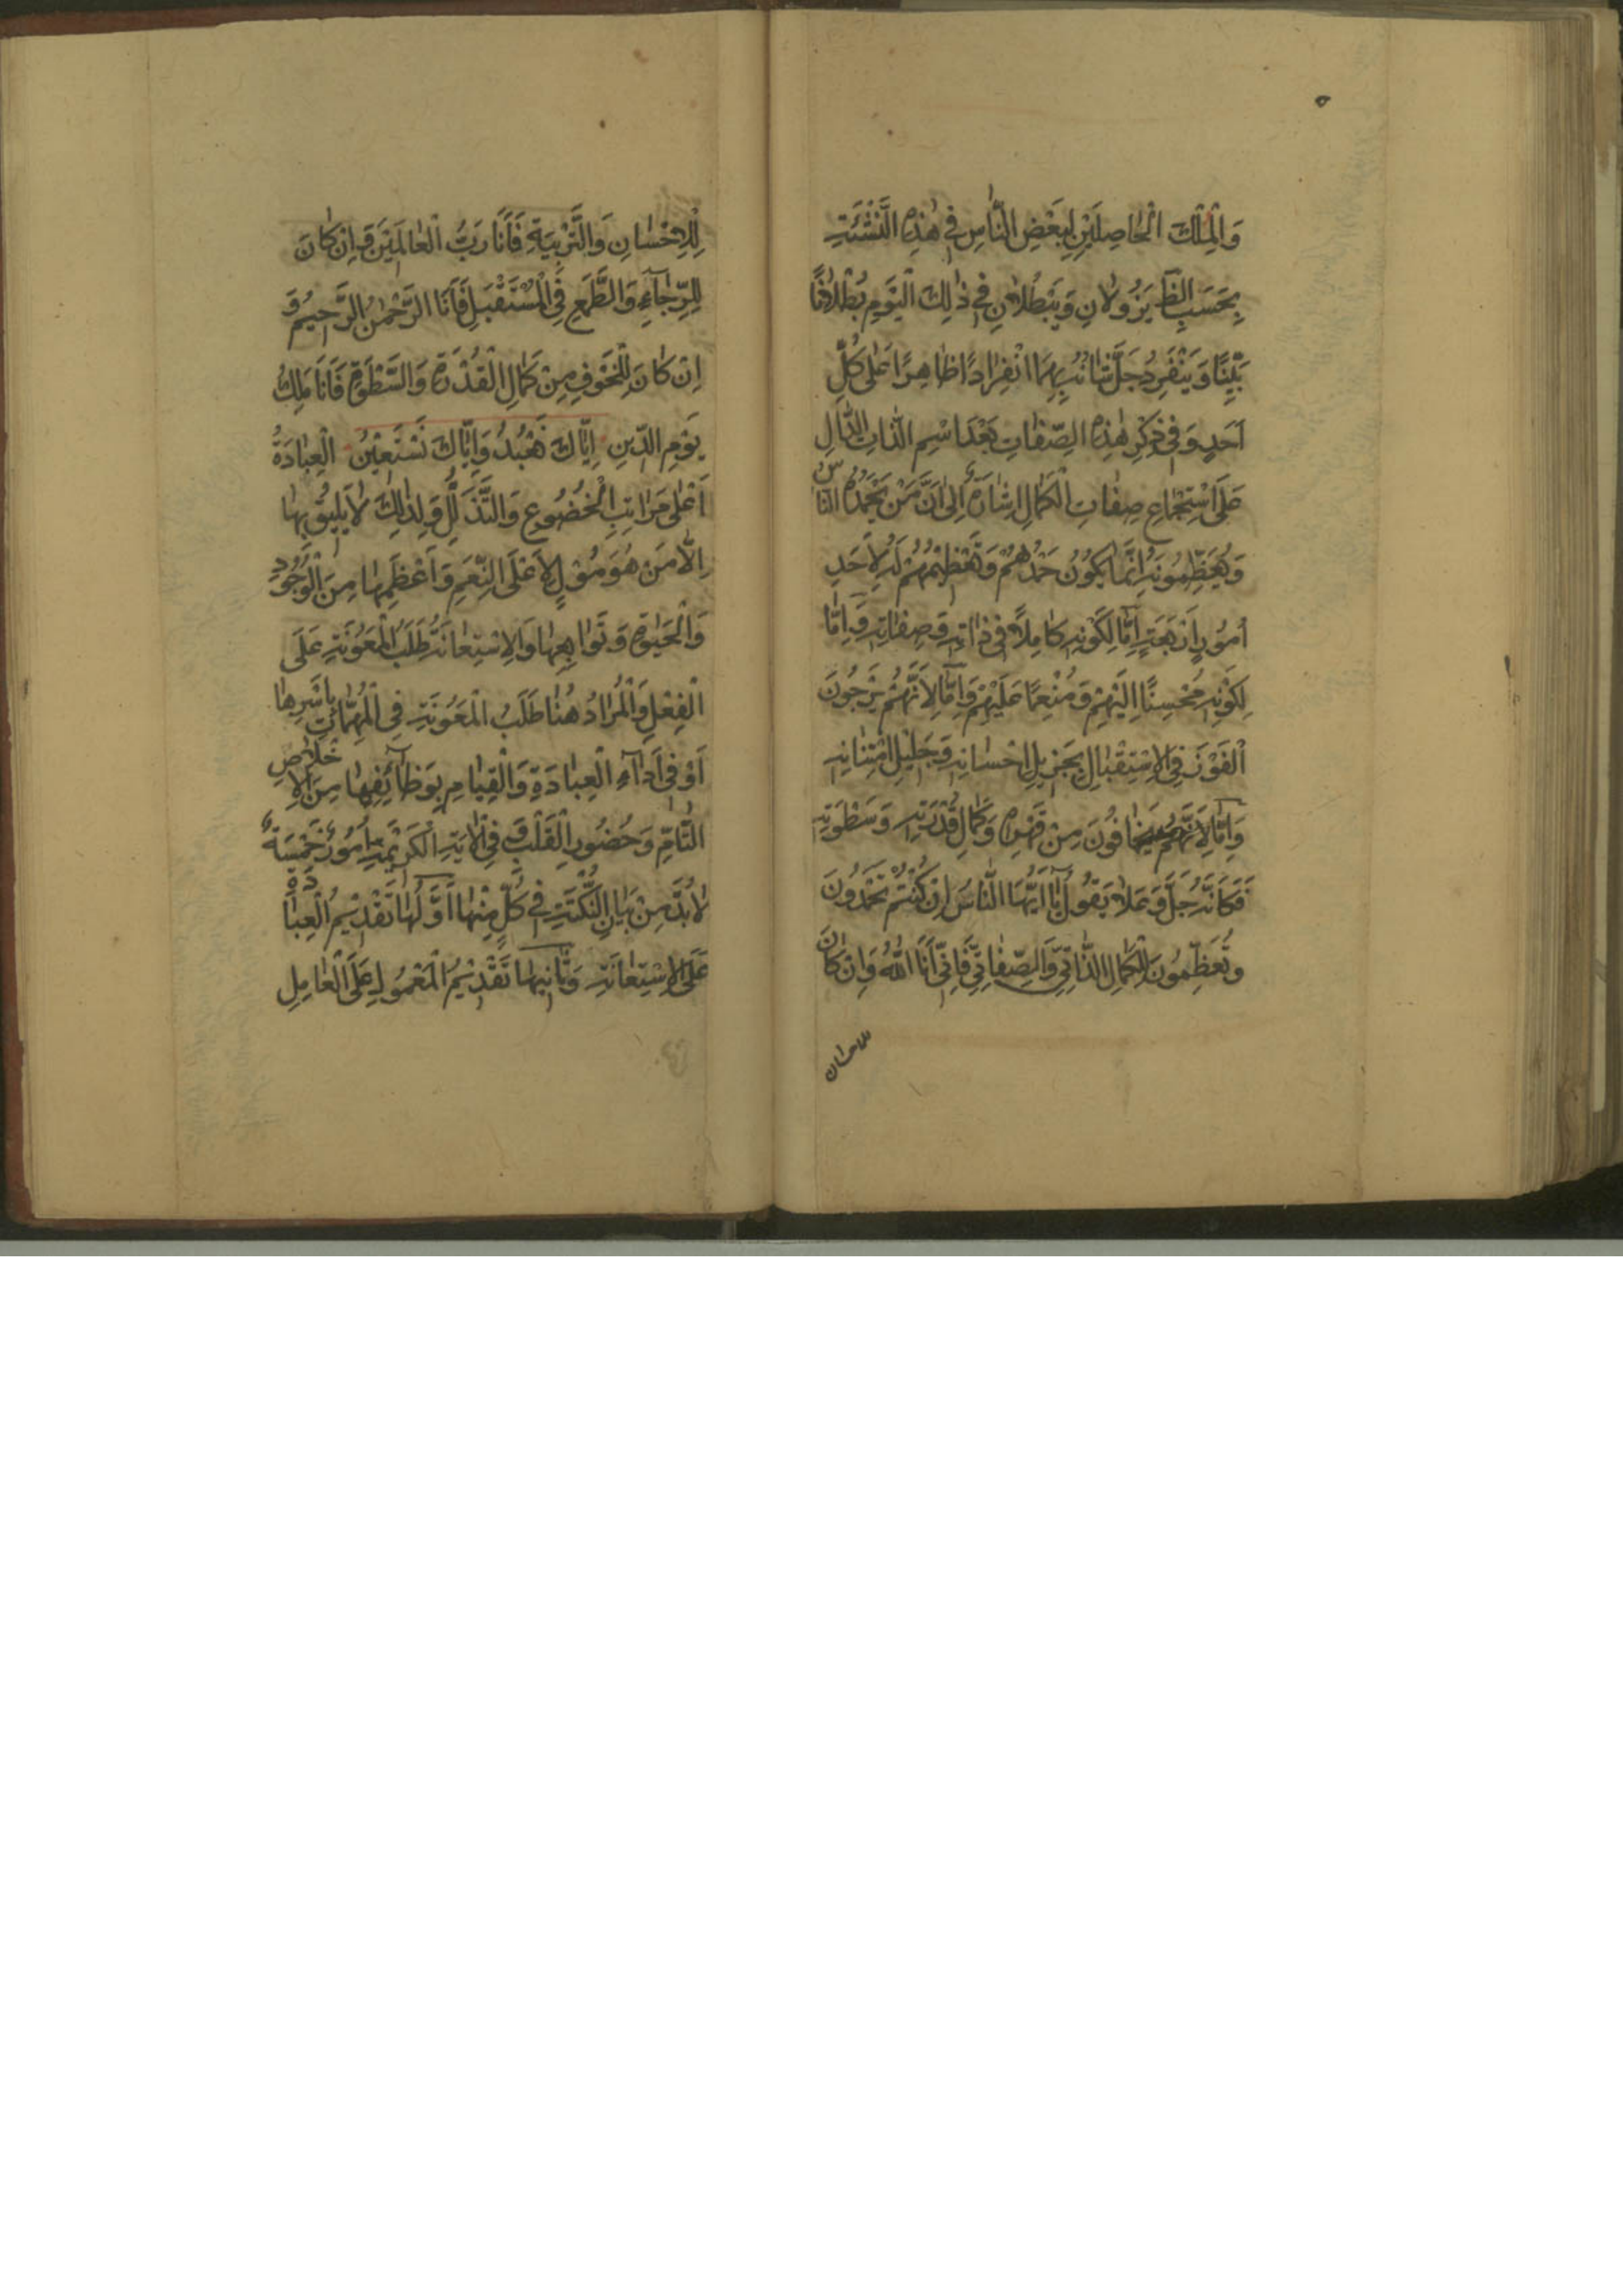 وَالْمِلْكَ الْحَاصِلَيْنِ لِبَعْضِ النَّاسِ فِي هٰذِهِ النَّشْئَةِ
بِحَسَبِ الظَّ يَزُولَانِ وَيَبْطُلَانِ فِي ذٰلِكَ الْيَوْمِ بُطْلَانًا
بَيِّنًا وَيَنْفَرِدُ جَلَّ شَانُهُ بِهِمَا انْفِرَادًا ظَاهِرًا عَلٰى كُلِّ
اَحَدٍ وَفِي ذِكْرِ هٰذِهِ الصِّفَاتِ بَعْدَ اسْمِ الذَّاتِ الدَّالِ
عَلَى اسْتِجْمَاعِ صِفَاتِ الْكَمَالِ اِشَارَةٌ اِلٰى اَنَّ مَنْ يَحْمَدُهُ النَّاسُ
وَيُعَظِّمُونَهُ اِنَّمَا يَكُونُ حَمْدُهُمْ وَتَعْظِيمُهُمْ لَهُ لِاَحَدِ
اُمُورٍ اَرْبَعَةٍ اِمَّا لِكَوْنِهِ كَامِلًا فِي ذَاتِهِ وَصِفَاتِهِ وَاِمَّا
لِكَوْنِهِ مُحْسِنًا اِلَيْهِمْ وَمُنْعِمًا عَلَيْهِمْ وَاِمَّا لِاَنَّهُمْ يَرْجُونَ
الْفَوْزَ فِي الِاسْتِقْبَالِ بِجَزِيلِ اِحْسَانِهِ وَجَلِيلِ امْتِنَانِهِ
وَاِمَّا لِاَنَّهُمْ يَخَافُونَ مِنْ قَهْرِهِ وَكَمَالِ قُدْرَتِهِ وَسَطْوَتِهِ
فَكَاَنَّهُ جَلَّ وَعَلَا يَقُولُ يَا اَيُّهَا النَّاسُ اِنْ كُنْتُمْ تَحْمَدُونَ
وَتُعَظِّمُونَ لِلْكَمَالِ الذَّاتِيِّ وَالصِّفَاتِيِّ فَاِنِّي اَنَا اللّٰهُ وَاِنْ كَانَ
للاحسان
لِلْاِحْسَانِ وَالتَّرْبِيَةِ فَاَنَا رَبُّ الْعَالَمِينَ وَاِنْ كَانَ
لِلرَّجَاءِ وَالطَّمَعِ فِي الْمُسْتَقْبَلِ فَاَنَا الرَّحْمٰنُ الرَّحِيمُ وَ
اِنْ كَانَ لِلْخَوْفِ مِنْ كَمَالِ الْقُدْرَةِ وَالسَّطْوَةِ فَاَنَا مَلِكُ
يَوْمِ الدِّينِ اِيَّاكَ نَعْبُدُ وَاِيَّاكَ نَسْتَعِيْنُ الْعِبَادَةُ
اَعْلٰى مَرَاتِبِ الْخُضُوعِ وَالتَّذَلُّلِ وَلِذٰلِكَ لَا يَلِيقُ بِهَا
اِلَّا مَنْ هُوَ مُوْلٍ لِاَعْلَى النِّعَمِ وَاَعْظَمِهَا مِنَ الْوُجُودِ
وَالْحَيٰوةِ وَتَوَابِعِهَا وَالِاسْتِعَانَةُ طَلَبُ الْمَعُونَةِ عَلَى
الْفِعْلِ وَالْمُرَادُ هُنَا طَلَبُ الْمَعُونَةِ فِي الْمُهِمَّاتِ بِاَسْرِهَا
اَوْ فِي اَدَاءِ الْعِبَادَةِ وَالْقِيَامِ بِوَظَائِفِهَا مِنَ الْاِخْلَاصِ
التَّامِّ وَحُضُورِ الْقَلْبِ وَفِي الْاٰيَةِ الْكَرِيْمَةِ اُمُورٌ خَمْسَةٌ
لَا بُدَّ مِنْ بَيَانِ النُّكْتَةِ فِي كُلٍّ مِنْهَا اَوَّلُهَا تَقْدِيْمُ الْعِبَادَةِ
عَلَى الِاسْتِعَانَةِ وَثَانِيهَا تَقْدِيْمُ الْمَعْمُولِ عَلَى الْعَامِلِ